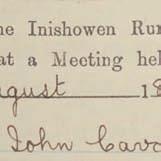 he Inishowen Rur
at a Meeting hel
ugust 18
John Cav